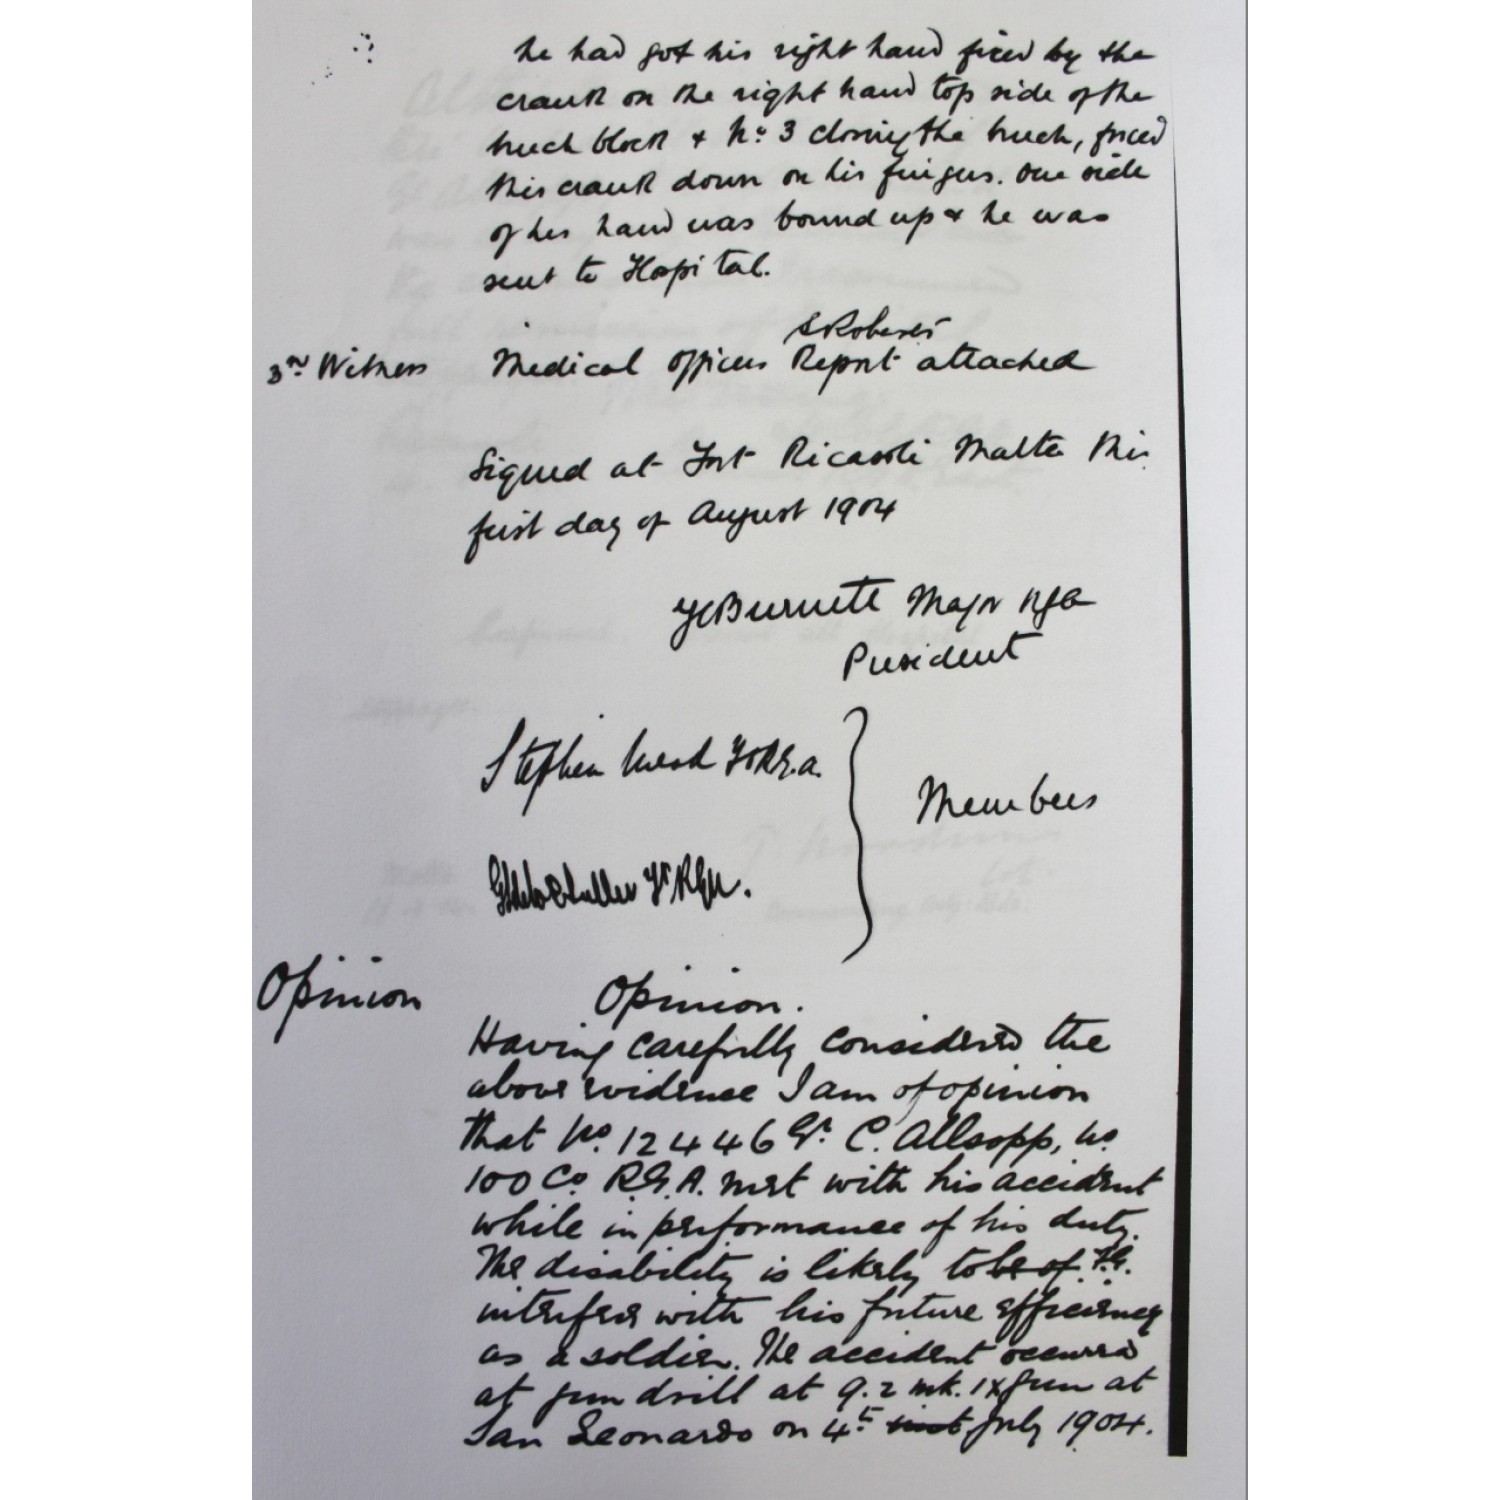 he had got his right hand fixed by the
crank on the right hand top side of the
breech block & No. 3 closing the breech, forced
this crank down on his fingers. One side
of his hand was bound up & he was
sent to Hospital.
S Roberts
3rd Witness Medical Officers Report attached
Signed at Fort Ricasoli Malta this
first day of August 1904
Burnett Major RGA
President
Stephen R.G.A.
Members
RGA.
Opinion Opinion.
Having carefully considered the
above evidence I am of opinion
that No. 12446 Gr. C. Allsopp, No
100 Co. R.G.A. met with his accident
while in performance of his duty.
The disability is likely to be of
interfere with his future efficiency
as a soldier. The accident occurred
at gun drill at 9.2 mk. IX gun at
San Leonardo on 4th inst July 1904.